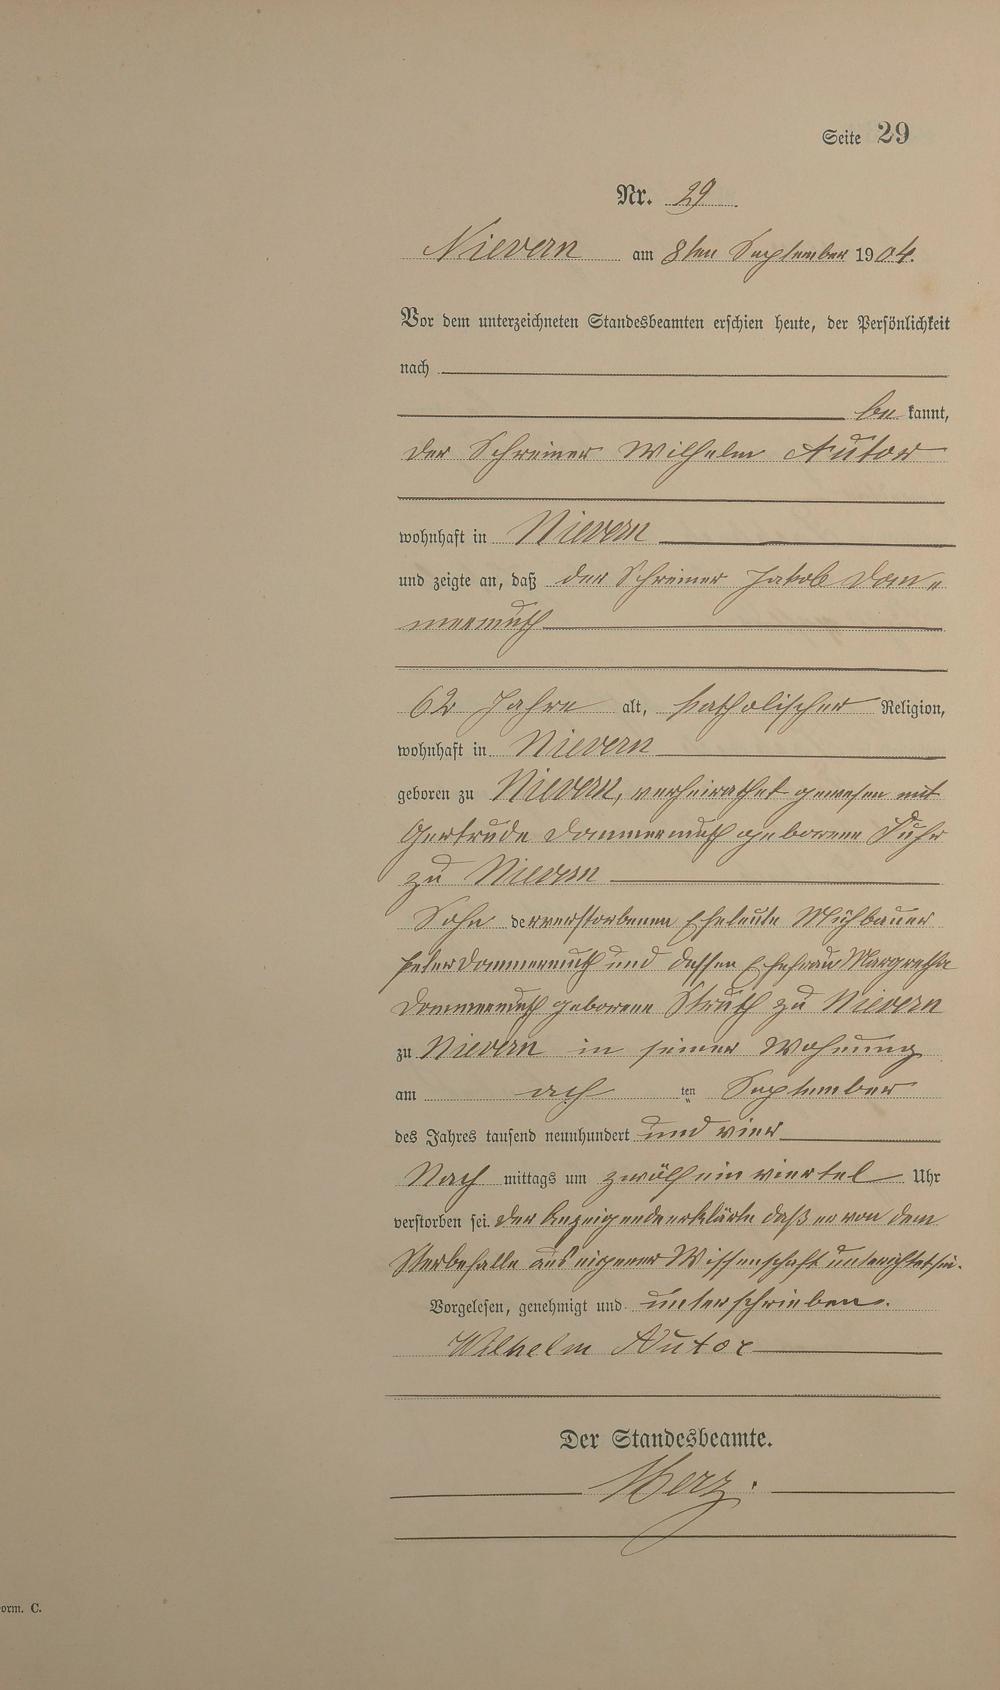 Seite 29
Nr. 29
Nievern am 8ten September 1904.
Vor dem unterzeichneten Standesbeamten erschien heute, der Persönlichkeit
nach
be kannt,
der Schreiner Wilhelm Autor
wohnhaft in Nievern
und zeigte an, daß der Schreiner Jakob Dom„
mermuth
62 Jahre alt, katholischer Religion,
wohnhaft in Nievern
geboren zu Nievern, verheirathet gewesen mit
Gertrude Dommermuth geborene Fuhr
zu Nievern
Sohn der verstorbenen Eheleute
Peter Dommermuth und dessen Ehefrau Margretha
Dommermuth geborene Struth zu Nievern
zu Nievern in seiner Wohnung
am ach ten September
des Jahres tausend neunhundert und vier
Nach mittags um zwölf ein viertel Uhr
verstorben sei. Der Anzeigende erklärte daß er von dem
Sterbefalle aus eigener Wissenschaft unterichtet sei.
Vorgelesen, genehmigt und unterschrieben.
Wilhelm Autor
Der Standesbeamte.
Herz.
orm. C.